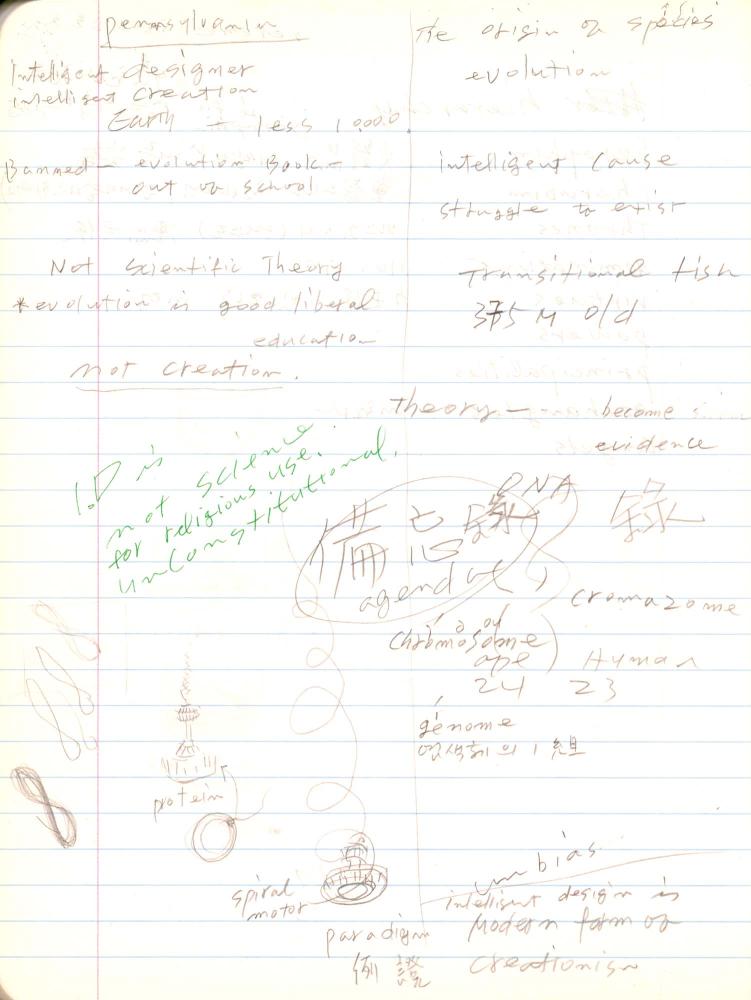 pennsylvanin
Intelligent designer
intelligent creation
Earth - less 10000.
Banned - evolution Book -
out of school
Not scientific Theory
*evolution is good liberal
education
not creation.
I.D is
not science
for religious use.
unconstitutional.
The origin of species
evolution
intelligent cause
struggle to exist
Transitional fish
375 M old
Theory - become
evidence
DNA
備忘錄 錄
agenda
cromazome
chromosome
ape) Human
24 23
génome
염색체의 1 組
protein
spiral
motor
paradigm
例證
un bias
intelligent design is
Modern form of
creationism